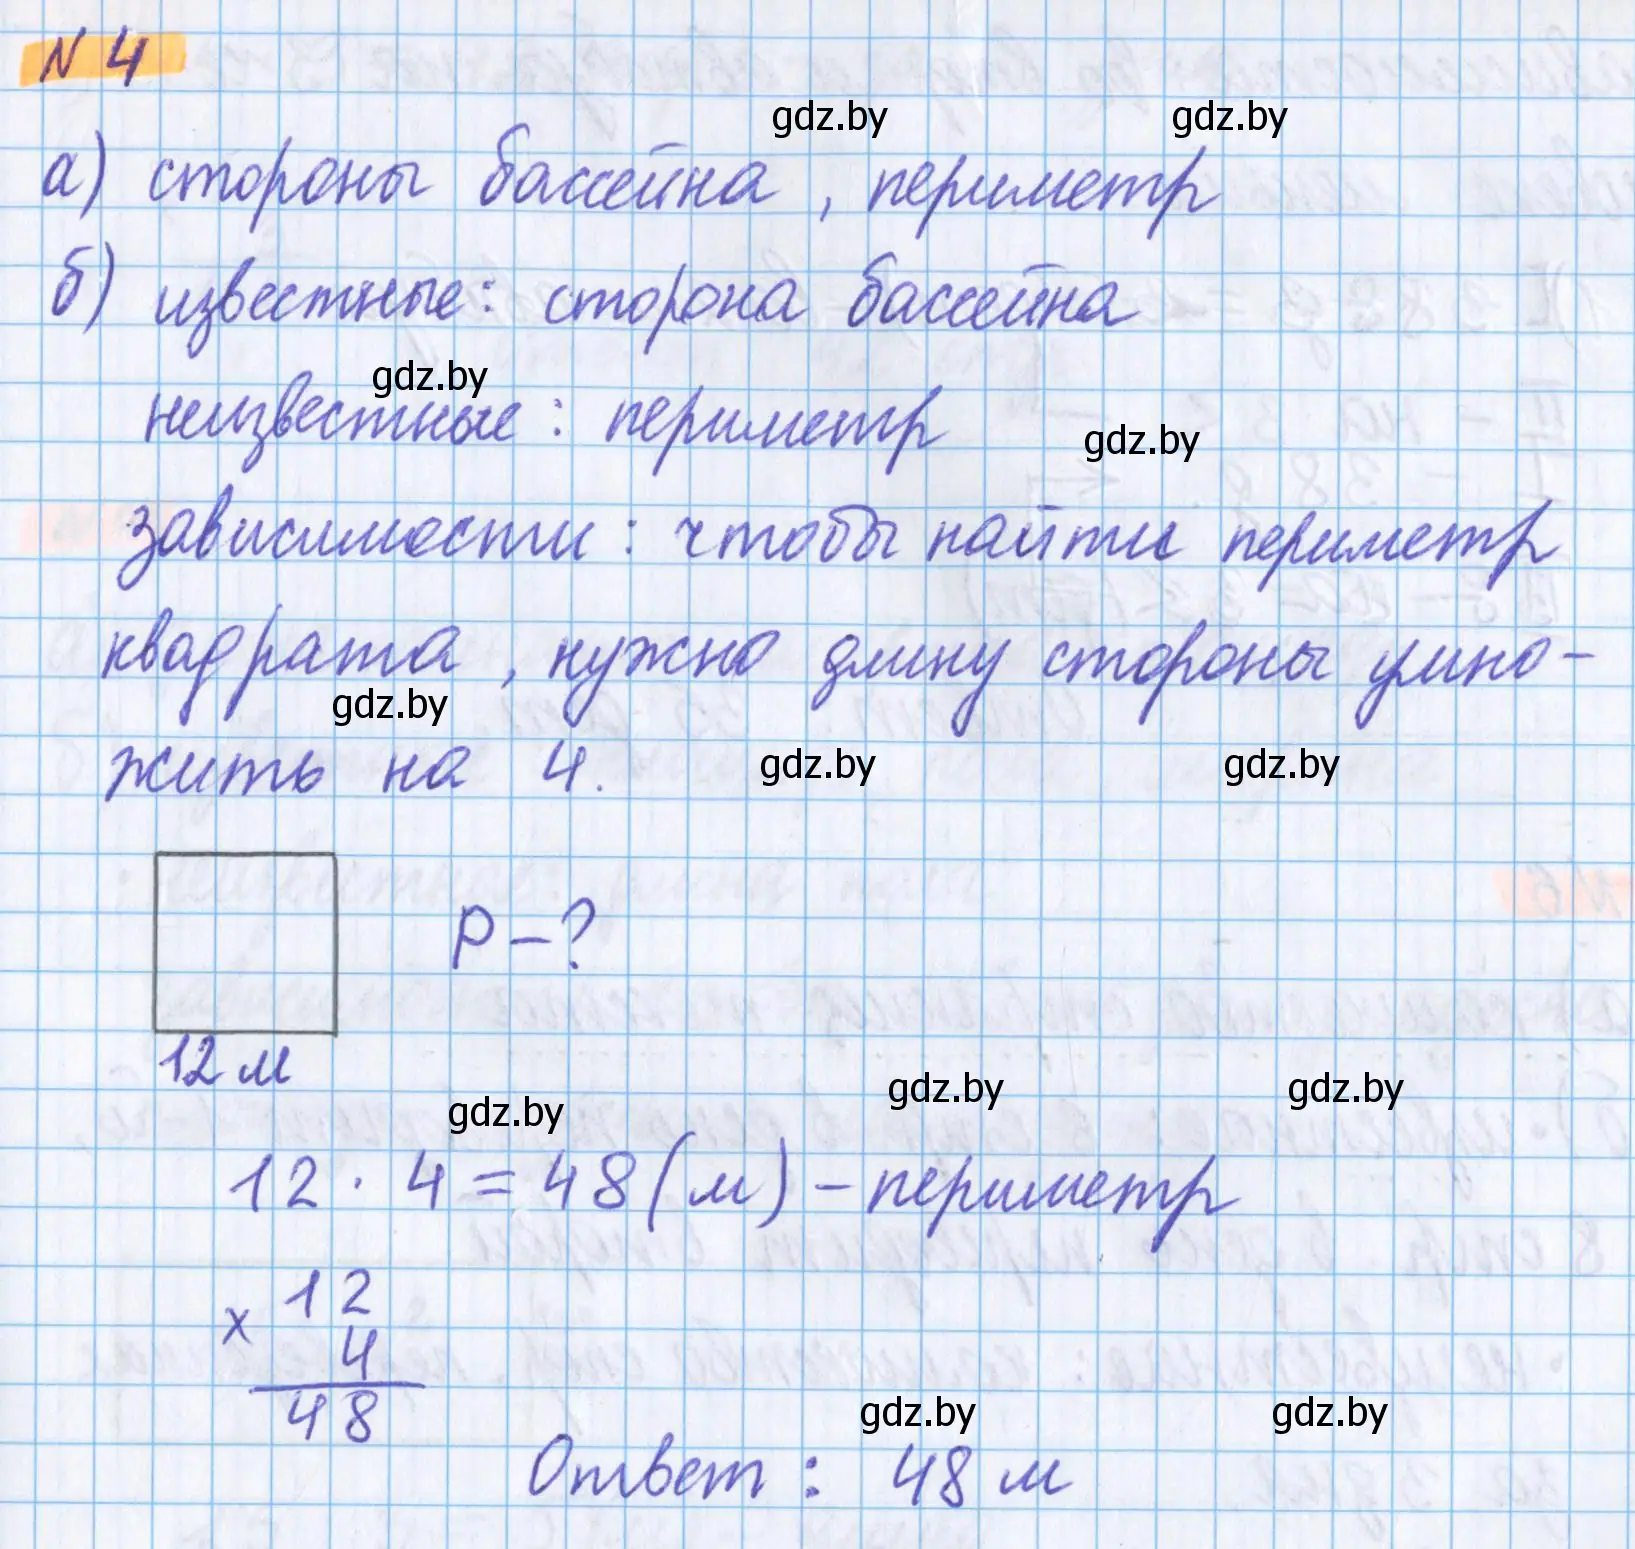 N 4
gdz.by gdz.by
а) стороны бассейна, периметр
б) известные: сторона бассейна
gdz.by
неизвестные: периметр
gdz.by
зависимости: чтобы найти периметр
квадрата, нужно длину стороны умно-
gdz.by
жить на 4.
gdz.by gdz.by
P - ?
12 м
gdz.by gdz.by gdz.by
12 · 4 = 48 (м) - периметр
12
× 4
48
gdz.by gdz.by
Ответ: 48 м